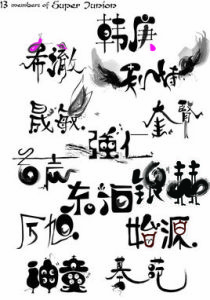 13 members of Super Junior
韩庚
希澈
利特
晟敏
奎賢
強仁
东海
银赫
厉旭
始源
神童
基范